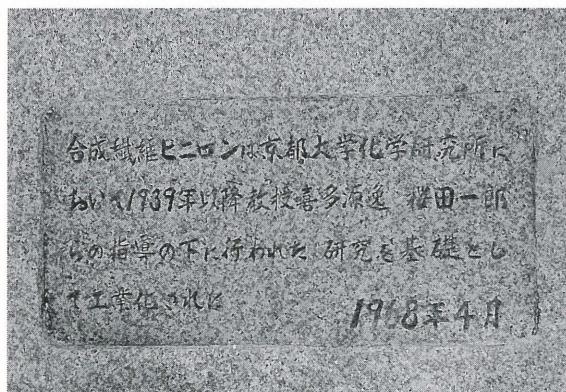 合成繊維ビニロンは京都大学化学研究所に
おいて1939年以降教授喜多源逸 桜田一郎
らの指導の下に行われた 研究を基礎とし
て工業化された
1968年4月